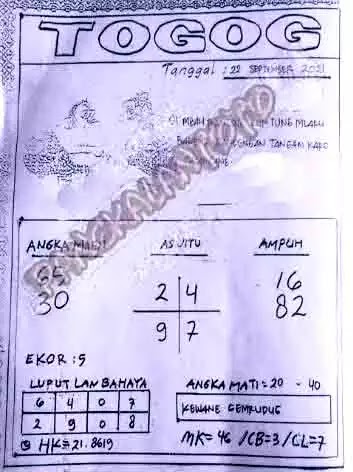 TOGOG
Tanggal : 22 SEPTEMBER 2021
PANGKALANTOTO
ANGKA MAIN
AS JITU
AMPUH
65
30
2 4
9 7
16
82
EKOR : 5
LUPUT LAN BAHAYA
6 4 0 7
2 9 0 8
HK= 21.8619
ANGKA MATI = 20 - 40
KEWANE GEMRUDUG
MK= 46 /CB=3 /CL=7